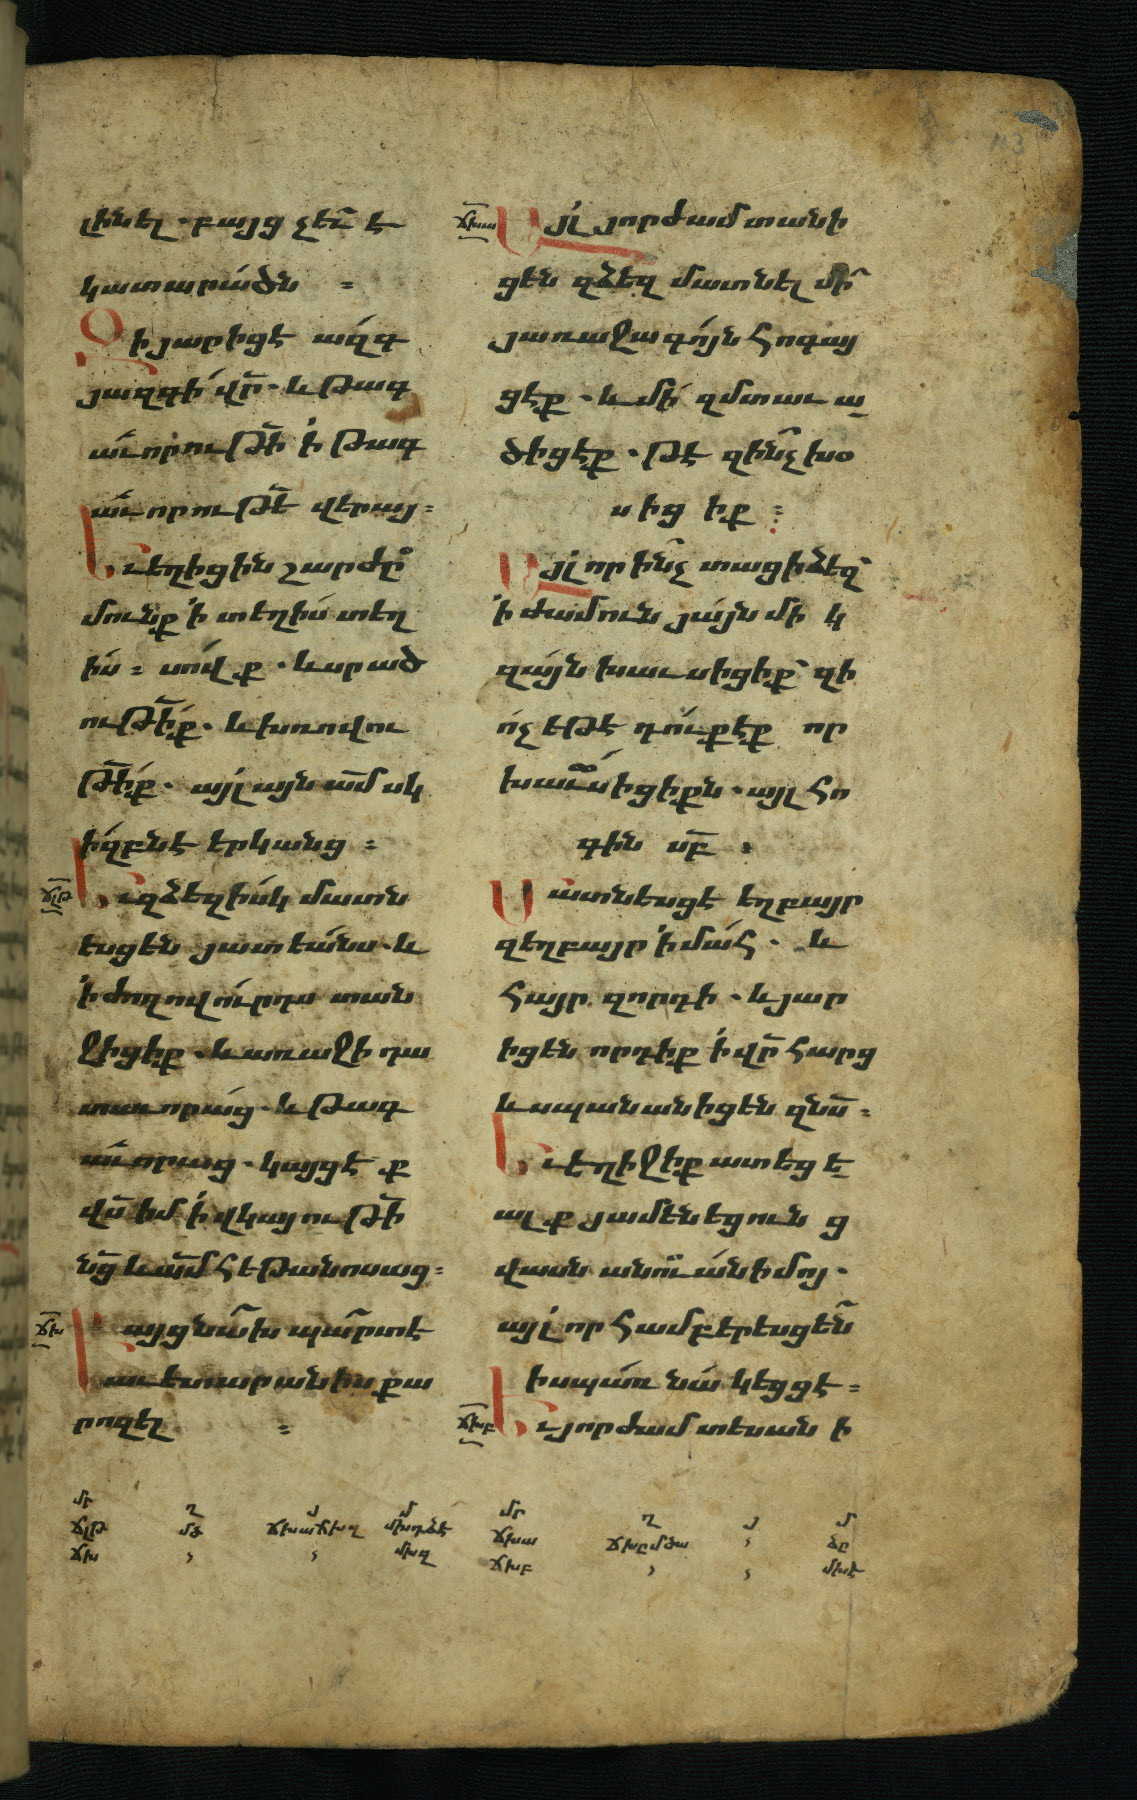 լինել. բայց չեւ̃ է
կատարածն :
Զի յարիցէ ազգ
յազգի վր̃. և թագ
աւորութի̃ ի թագ
աւորութե̃ վերայ :
Եւ եղիցին շարժը
մունք ի տեղիս տեղ
իս : սով ք. և սրած
ութի̃ք. և խռովու
թի̃ք. այլ այն ամ̃ սկ
իզբն է երկանց :
ՃԼԹ
Եւ զձեզ իսկ մատն
եսցեն յատեանս. և
ի ժողովուրդս տան
ջիցիք. և առաջի դա
տաւորաց. և թագ
աւորաց. կայցէ ք
վս̃ իմ ի վկայութի̃
նց̃ և ամ̃ հեթանոսաց :
ՃԽ
Բայց նախ պարտ է
աւետարանիս քա
րոզել :
ՃԽԱ
Այլ յորժամ տանի
ցեն զձեզ մատնել մի
յառաջագոյն հոգայ
ցէք. և մի զմտաւ ա
ծիցէք. թէ զինչ խօ
սիցիք :
Այլ որ ինչ տացի ձեզ
ի ժամուն յայնմի կ
զայն խաւսիցիք զի
ոչ եթէ դուք էք որ
խաւսիցիքն. այլ հո
գին սբ̃ :
Մատնեսցէ եղբայր
զեղբայր ի մահ. և
հայր զորդի. և յար
իցեն որդիք ի վր̃ հարց
և սպանանիցեն զնս̃ :
Եւ եղիջիք ատեցե
ալ ք յամենեցուն ց
վասն անուան իմոյ.
այլ որ համբերեսցեն
իսպառ նա կեցցէ :
ՃԽԲ
Եւ յորժամ տեսանի
մր ղ յ մ մր ղ յ մ
ՃԼԹ ՃԽԱ
ՃԽ ՃԽԲ